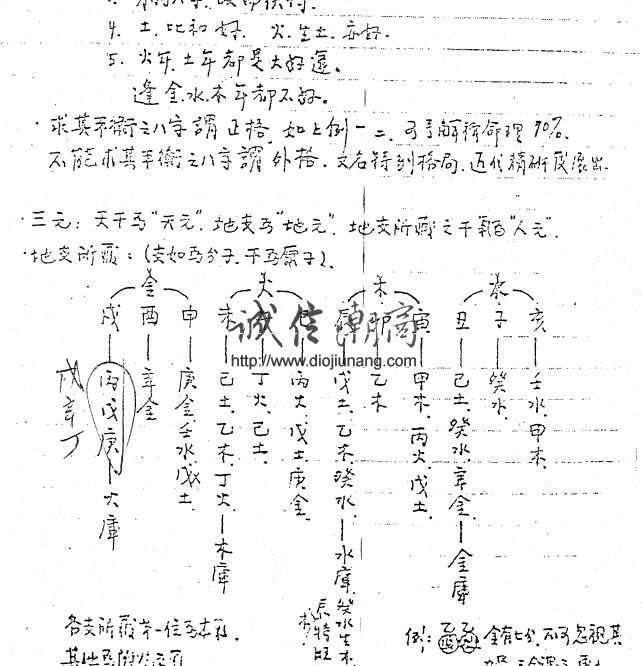 4. 土.比和好. 火.生土.亦好.
5. 火年.土年都是大好運。
逢金.水.木年都不好。
·求其平衡之八字謂正格.如上例一二.可解釋命理90%.
不能求其平衡之八字謂外格.又名特別格局.近代精研發展出.
·三元: 天干為"天元".地支為"地元".地支所藏之干為"人元".
·地支所藏: (支如為分子.干為原子).
金 火 木 水
戌 酉 申 未 巳 辰 卯 寅 丑 子 亥
壬水.甲木
癸水.
己土.癸水.辛金—金庫
甲木.丙火.戊土.
乙木
戊土.乙木.癸水—水庫
丙火.戊土.庚金.
丁火.己土.
己土.乙木.丁火—木庫
庚金.壬水.戊土
辛金
丙戊庚—火庫
戊辛丁
誠信
http://www.diojiunang.com
各支所藏第一位為本氣.
例: 金有七分.不可忽視其